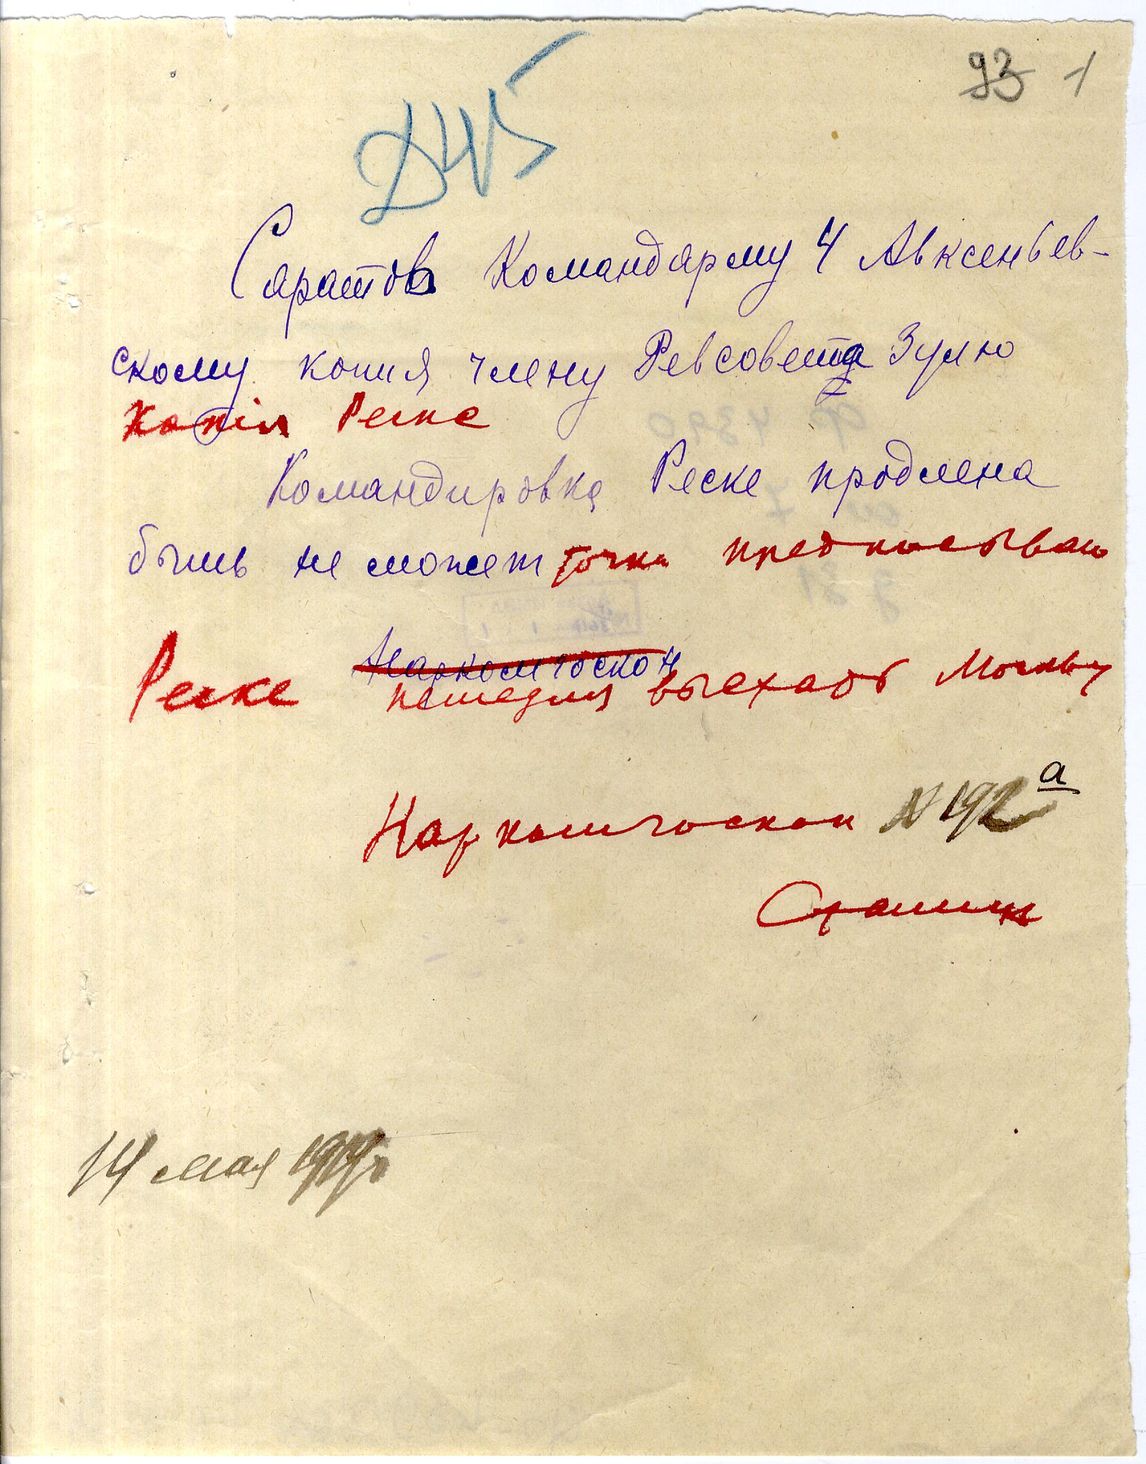 93 1
245
Саратов Командарму 4 Авксеньев-
скому копия члену Ревсовета Зулю
Копия Реске
Командировка Реске продлена
быть не может точка предписываю
Наркомгоскон
Реске немедля выехать Москву
Наркомгоскон № 192 а
Сталин
14 мая 1919 г